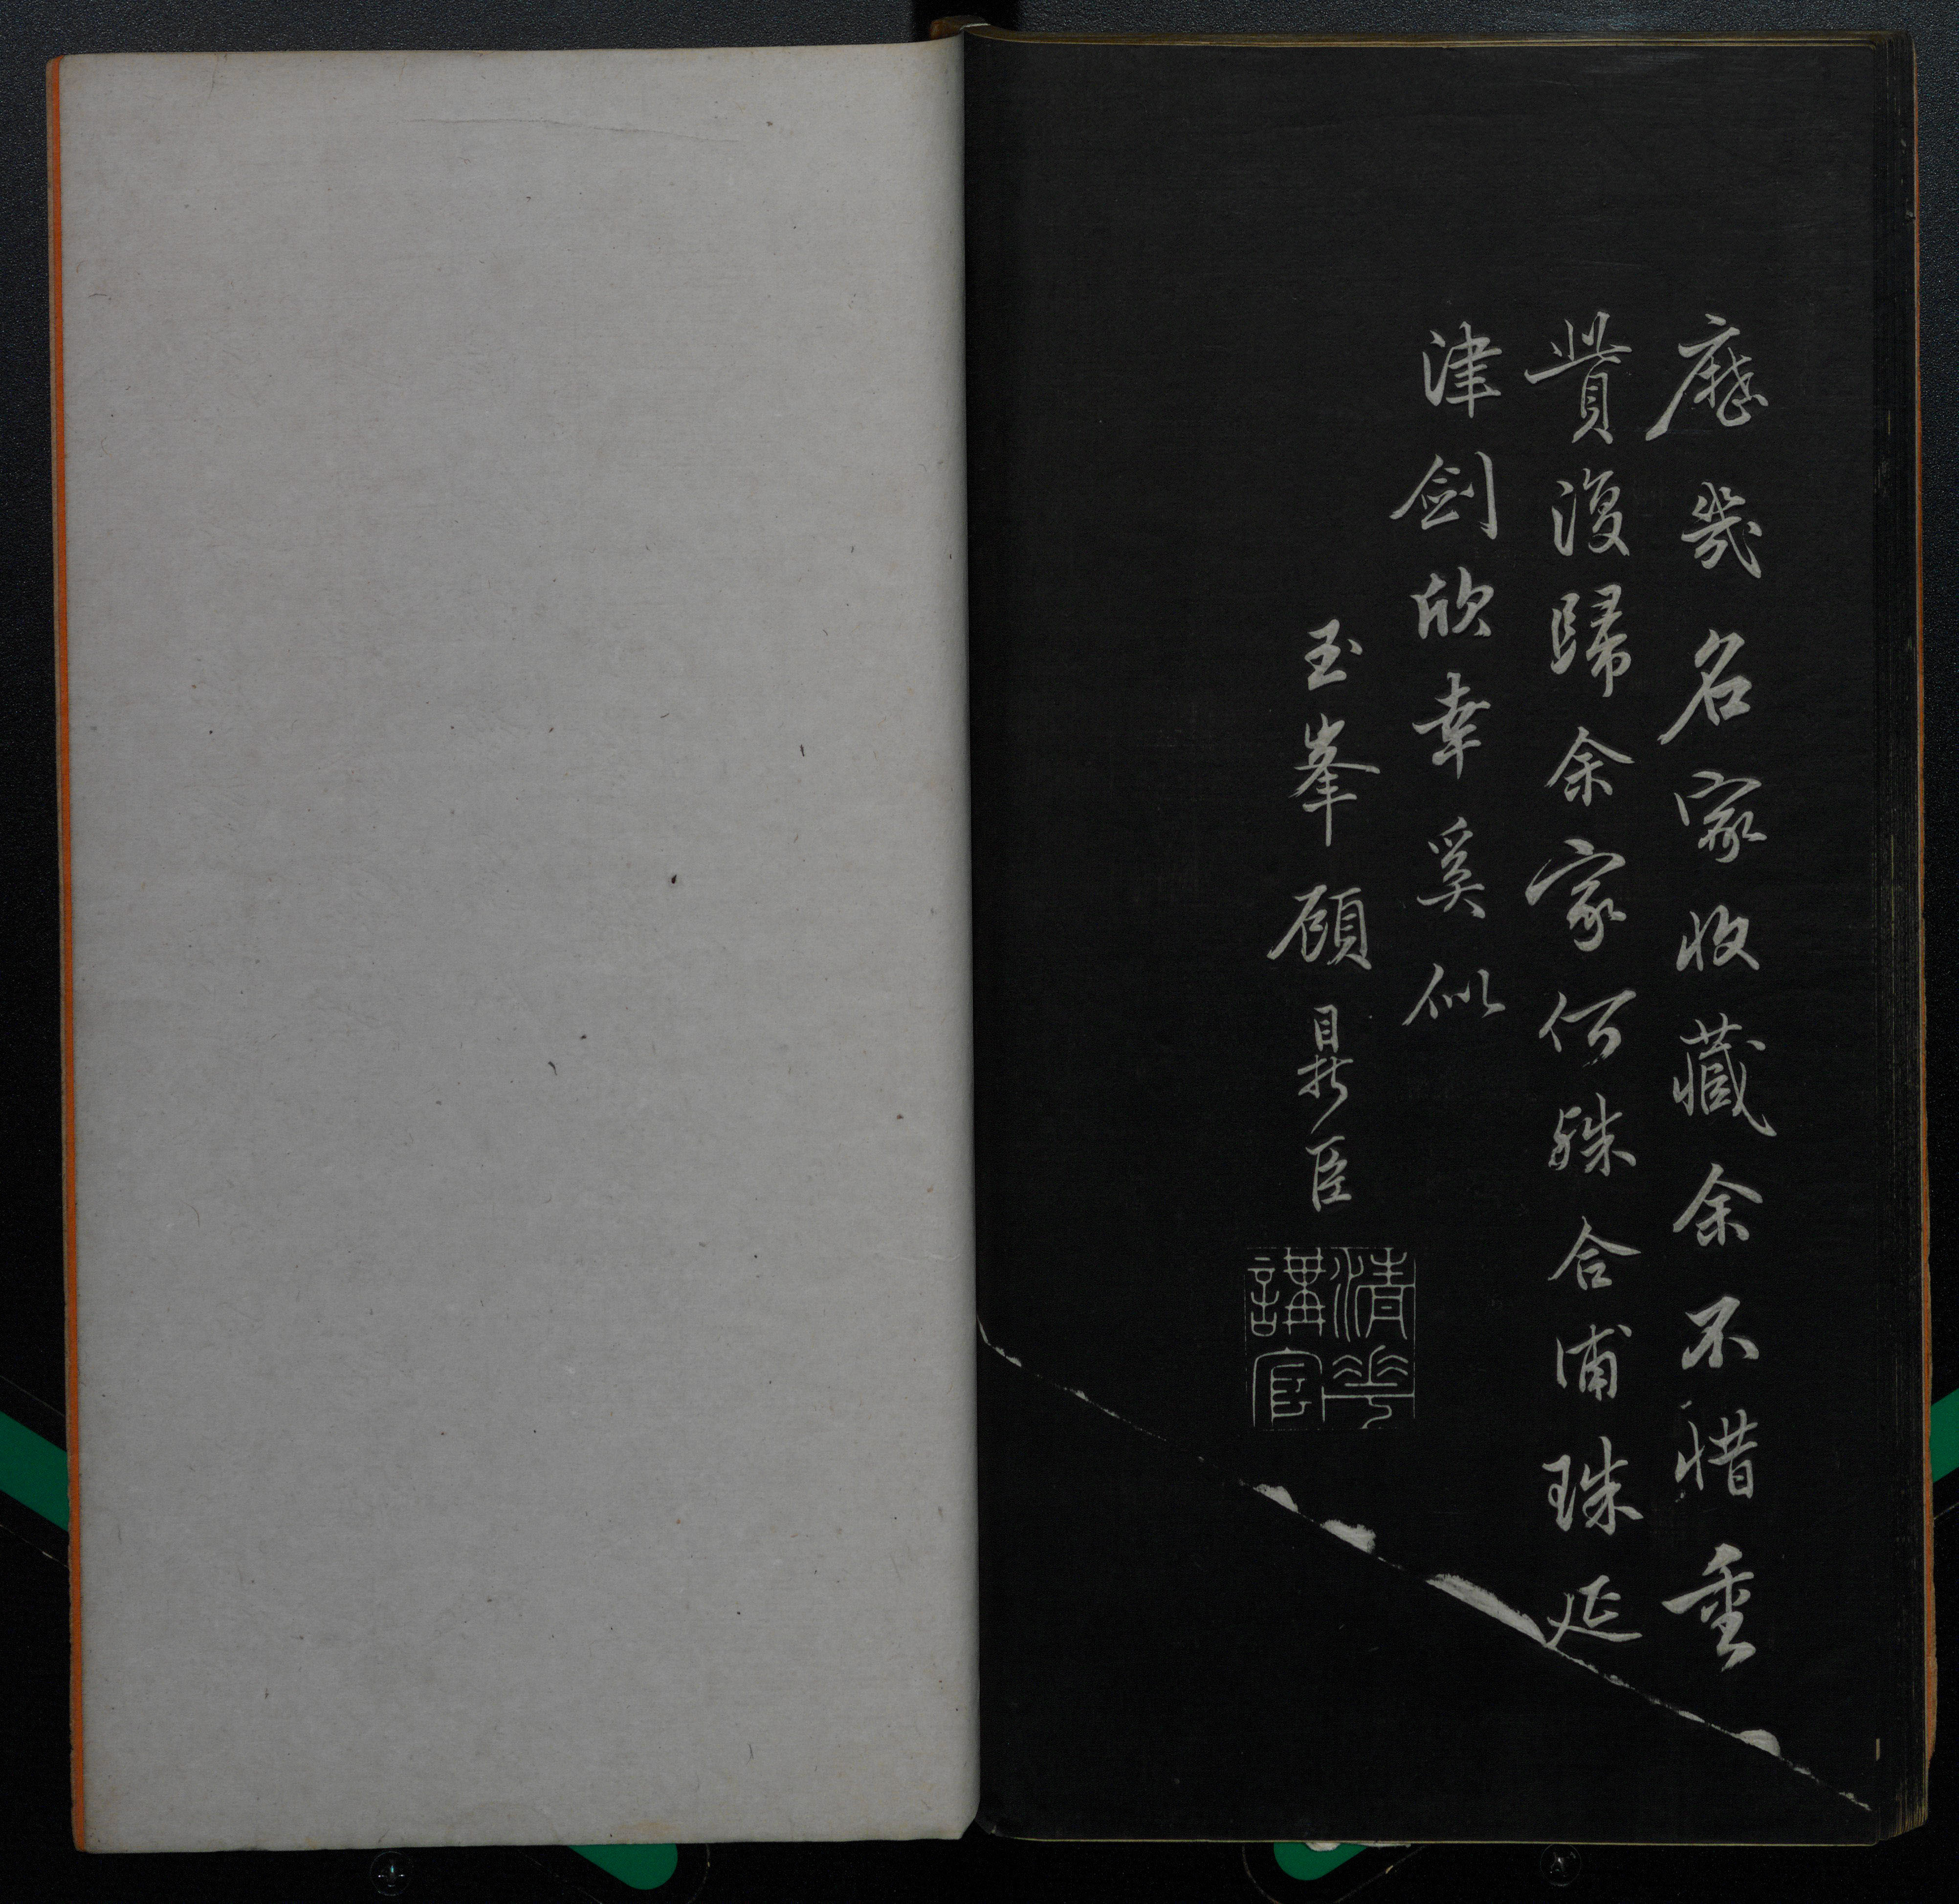 歷幾名家收藏余不惜重
貲復歸余家何殊合浦珠延
津劍欣幸奚似
玉峯顧鼎臣
清華
講官